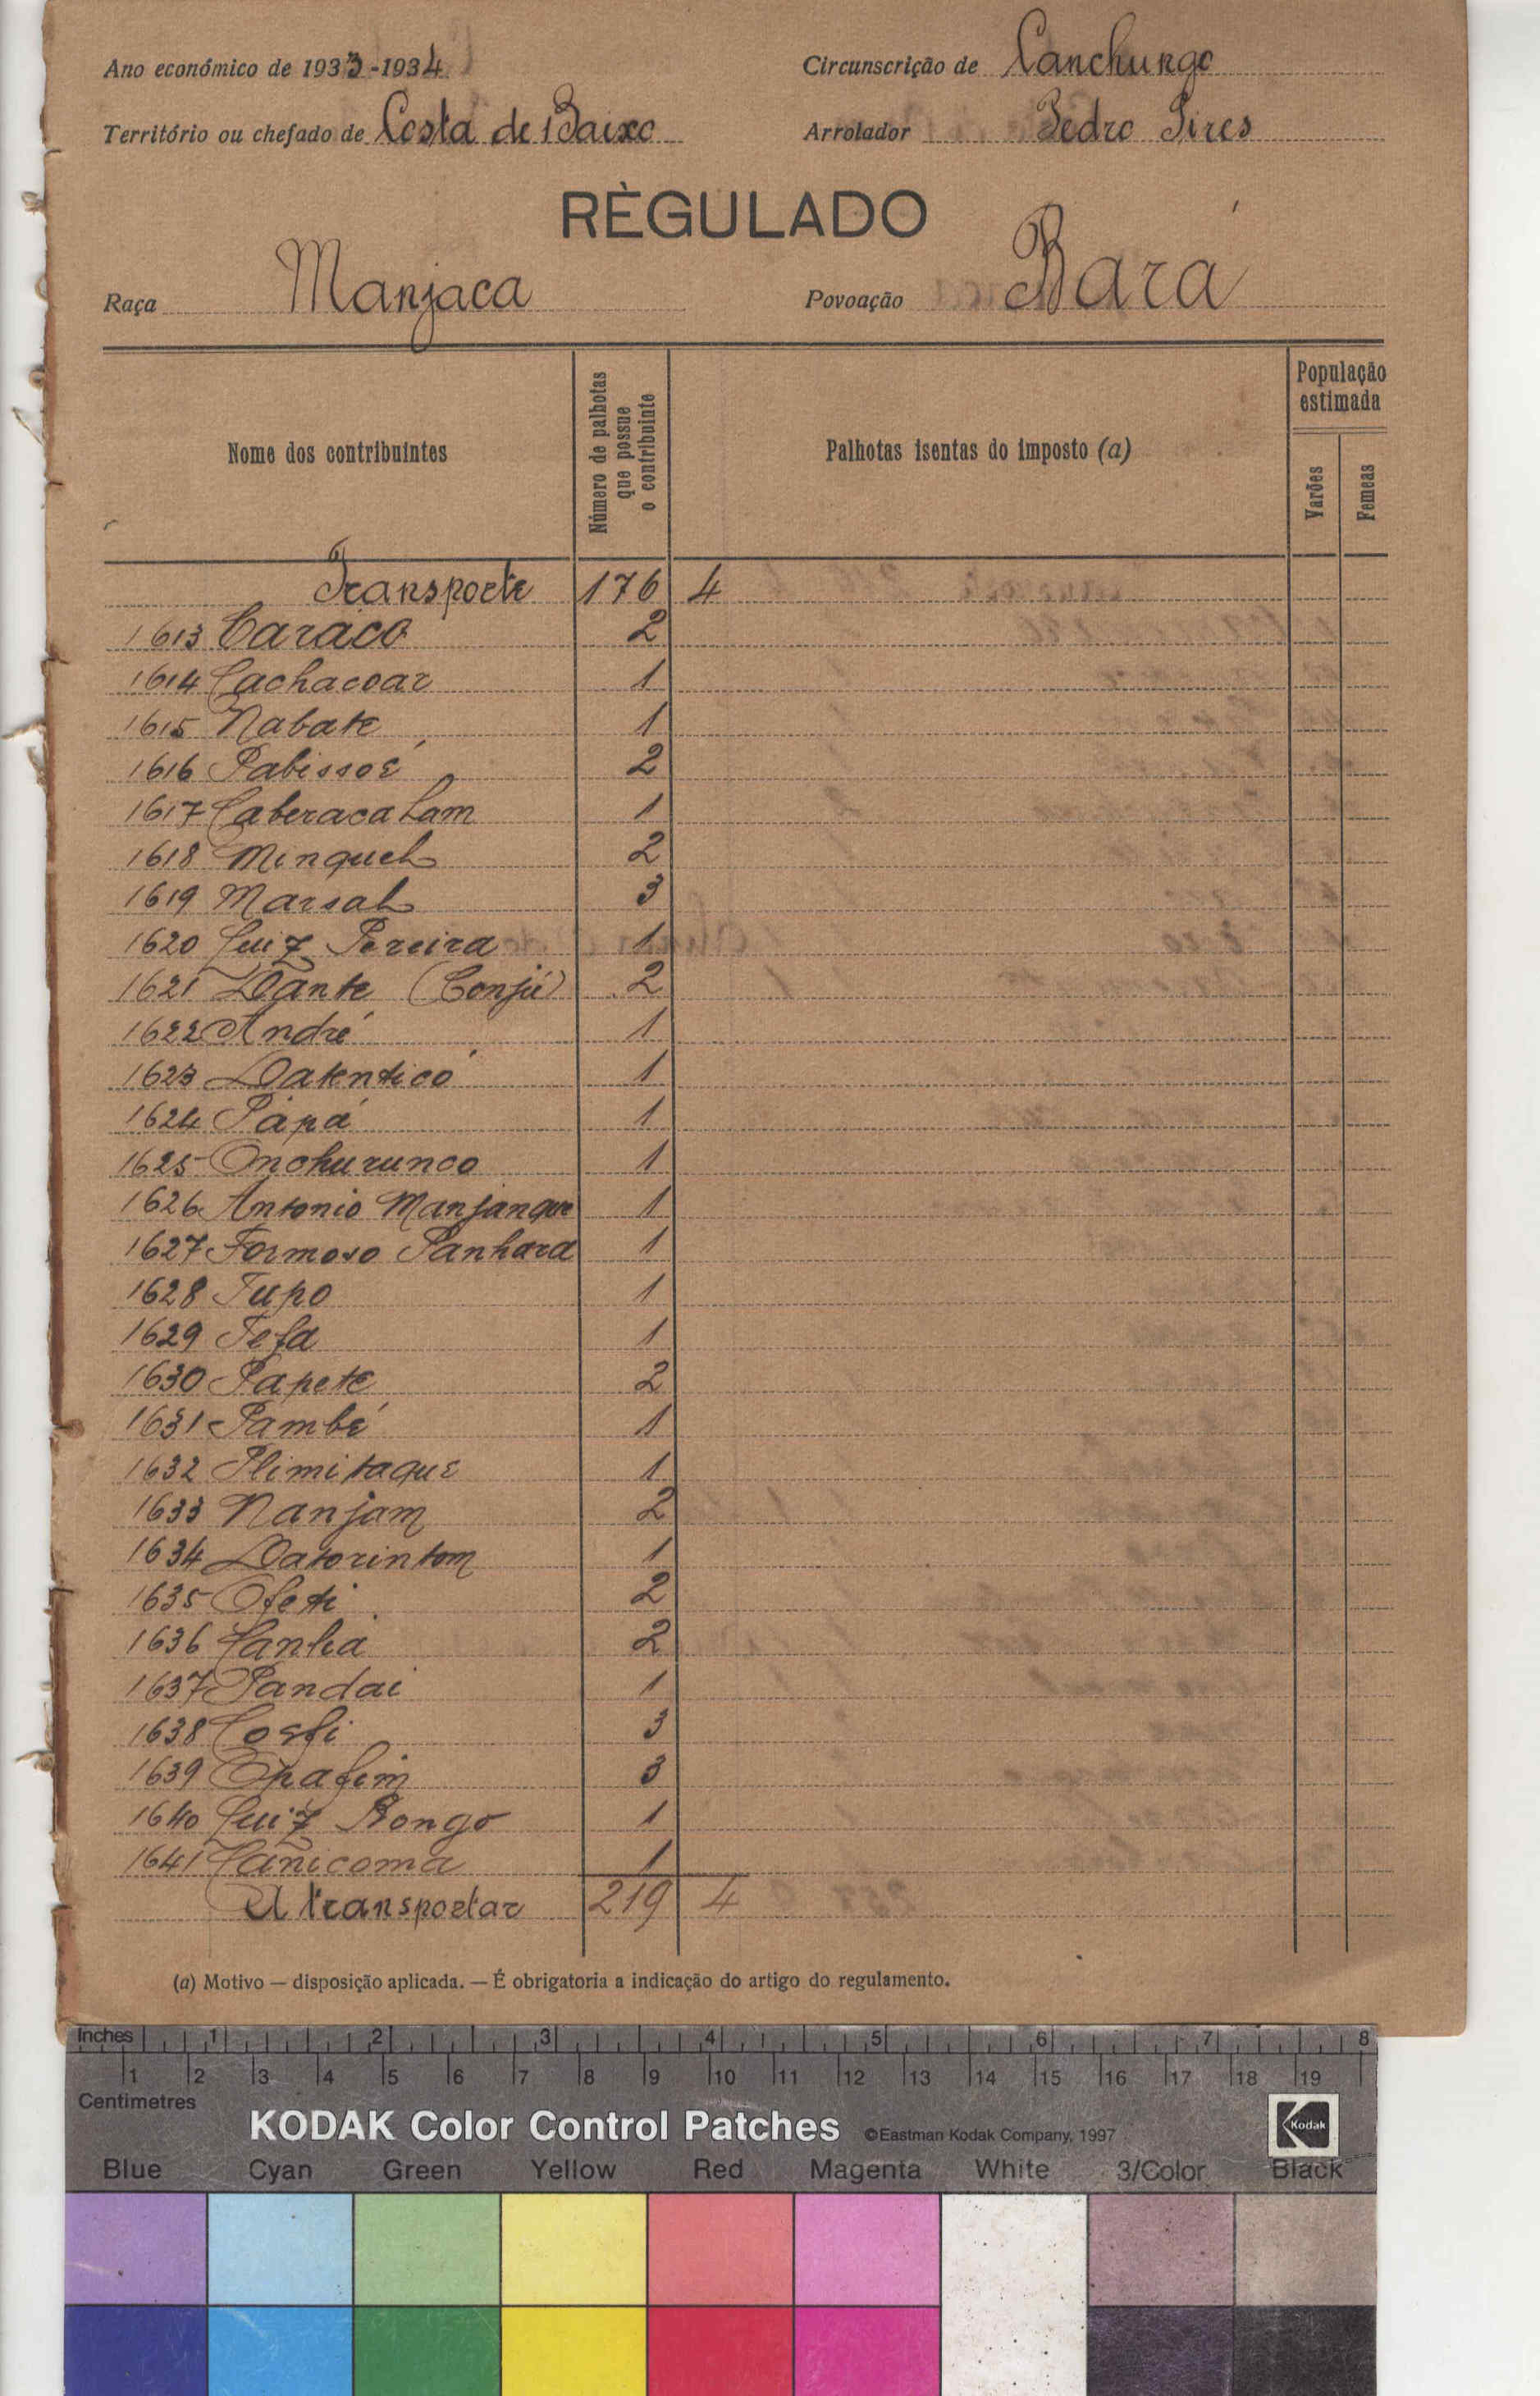 Ano económico de 1933-1934 Circunscrição de Canchungo
Território ou chefado de Costa de Baixo Arrolador Pedro Pires
RÈGULADO
Raça Manjaca Povoação Bará
Nome dos contribuintes Número de palhotas que possue o contribuinte Palhotas isentas do imposto (a) População estimada Varões Femeas
Transporte 176 4
1613 Caraco 2
1614 Cachacoar 1
1615 Nabate 1
1616 Pabissoé 2
1617 Caberaca Lam 1
1618 Minquel 2
1619 Marsal 3
1620 Luiz Pereira 1
1621 Dante (Conjú) 2
1622 André 1
1623 Datenticó 1
1624 Pápá 1
1625 Onchurunco 1
1626 Antonio Manjanque 1
1627 Formoso Panhara 1
1628 Tupo 1
1629 Tefa 1
1630 Papete 2
1631 Pambé 1
1632 Plimitaque 1
1633 Nanjam 2
1634 Datorintom 1
1635 Ofeti 2
1636 Canha 2
1637 Pandai 1
1638 Cosfi 3
1639 Opafim 3
1640 Luiz Bongo 1
1641 Canicoma 1
A transportar 219 4
(a) Motivo — disposição aplicada. — É obrigatoria a indicação do artigo do regulamento.
Inches 1 2 3 4 5 6 7 8
1 2 3 4 5 6 7 8 9 10 11 12 13 14 15 16 17 18 19
Centimetres
KODAK Color Control Patches ©Eastman Kodak Company, 1997 Kodak
Blue Cyan Green Yellow Red Magenta White 3/Color Black